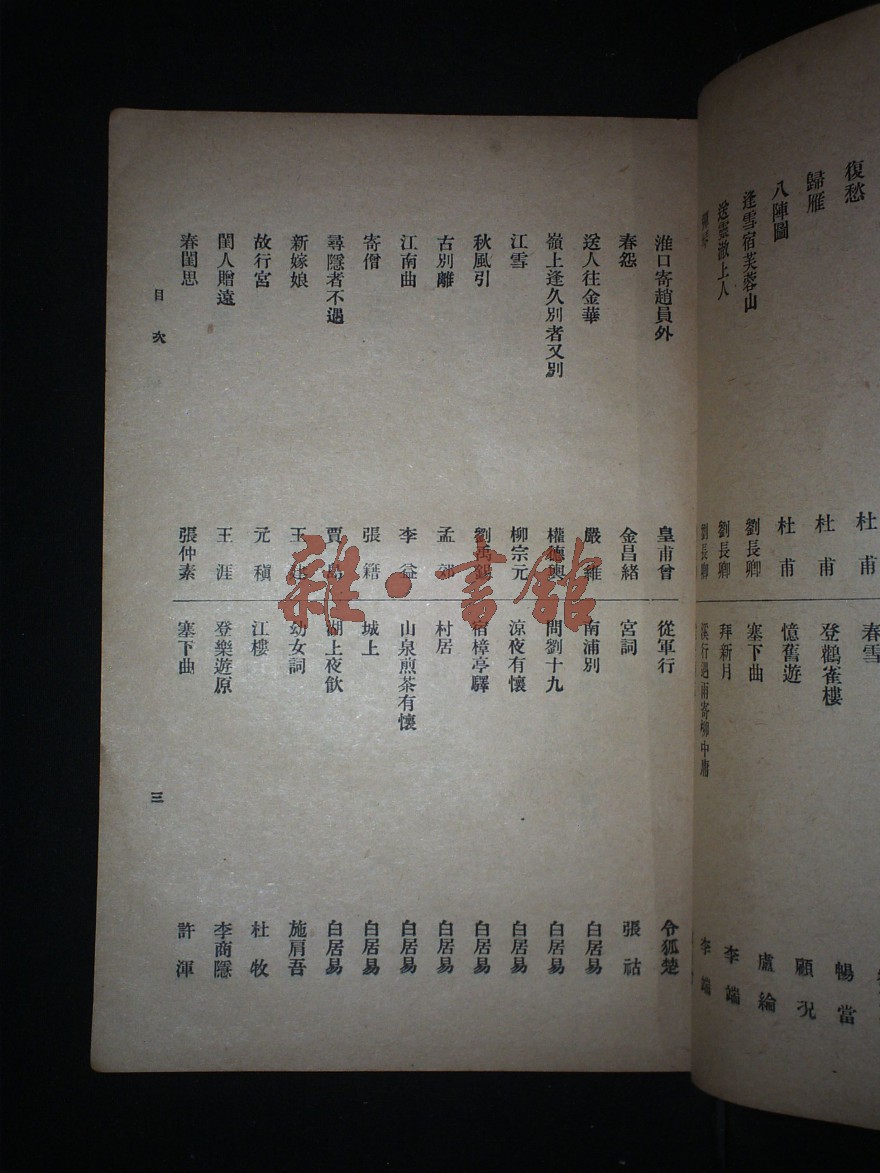 復愁
杜甫
春雪
歸雁
杜甫
登鸛雀樓
暢當
八陣圖
杜甫
憶舊遊
顧況
逢雪宿芙蓉山
劉長卿
塞下曲
盧綸
送靈澈上人
劉長卿
拜新月
李端
劉長卿
溪行遇雨寄柳中庸
李端
淮口寄趙員外
皇甫曾
從軍行
令狐楚
春怨
金昌緒
宮詞
張祜
送人往金華
嚴維
南浦別
白居易
嶺上逢久別者又別
權德輿
問劉十九
白居易
江雪
柳宗元
涼夜有懷
白居易
秋風引
劉禹錫
宿樟亭驛
白居易
古別離
孟郊
村居
白居易
江南曲
李益
山泉煎茶有懷
白居易
寄僧
張籍
城上
白居易
尋隱者不遇
賈島
湖上夜飲
白居易
新嫁娘
王建
幼女詞
施肩吾
故行宮
元稹
江樓
杜牧
閨人贈遠
王涯
登樂遊原
李商隱
春閨思
張仲素
塞下曲
許渾
目次
三
雜·書館